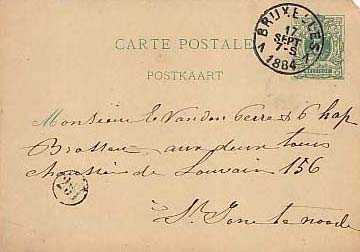 CARTE POSTALE
POSTKAART
BRUXELLES 1
17
SEPT
7-S
1884
Monsieur E Vanden Perre & 6 hap
Brasseur aux deux tours
chaussée de Louvain 156
à St Josse te noode